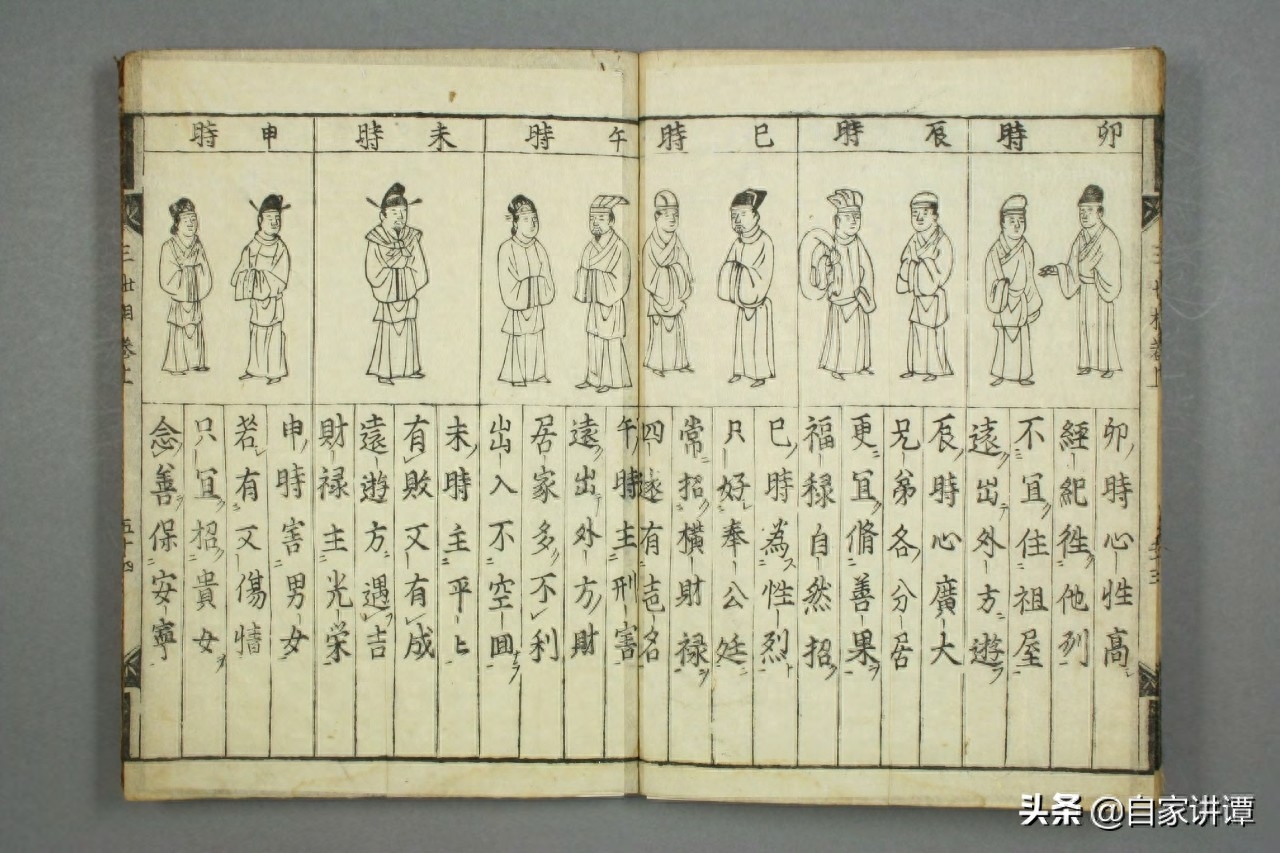 卯時
辰時
巳時
午時
未時
申時
卯時心性高
經紀徃他列
不冝住祖屋
遠出外方遊
辰時心廣大
兄弟各分居
更冝脩善果
福禄自然招
巳時為性烈
只好奉公廷
常招橫財禄
四遂有壱名
午時主刑害
遠出外方財
居家多不利
出入不空囬
未時主平〻
有敗又有成
遠遊方遇吉
財禄主光栄
申時害男女
若有又傷情
只冝招貴女
念善保安寧
三世相卷上
五十四
头条 @自家讲谭